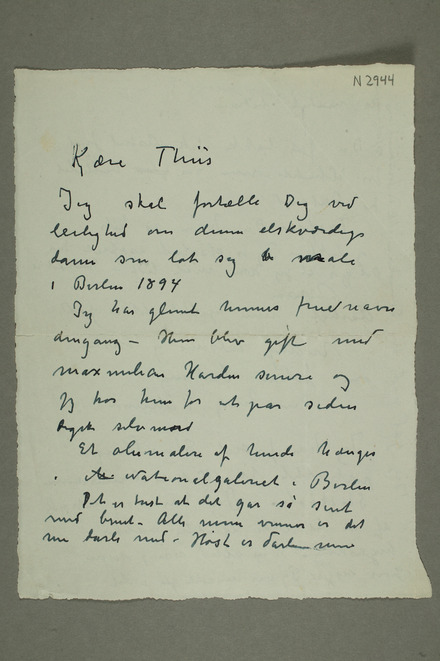 N 2944
Kjære Thiis
Jeg skal fortælle Dig ved
leilighed om denne elskværdige
dame som lot sig male
i Berlin 1894
Jeg har glemt hennes
dengang – Hun blev gift med
Maximilian Harden senere og
jeg hos hun for et par siden
selvmord
Et oljemaleri af hende hænger
i Nationalgaleriet i Berlin
Det er trist at det går så sent
med – Alle mine venner er det
– Høst er